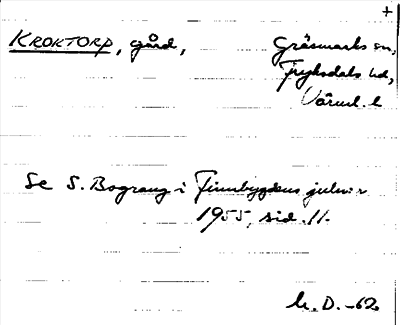 +
KROKTORP, gård, Gräsmarks sn,
Fryksdals hd,
Värml. l
Se S. Bograng i Finnbygdens julnr
1955, sid. 11.
M. D. -62